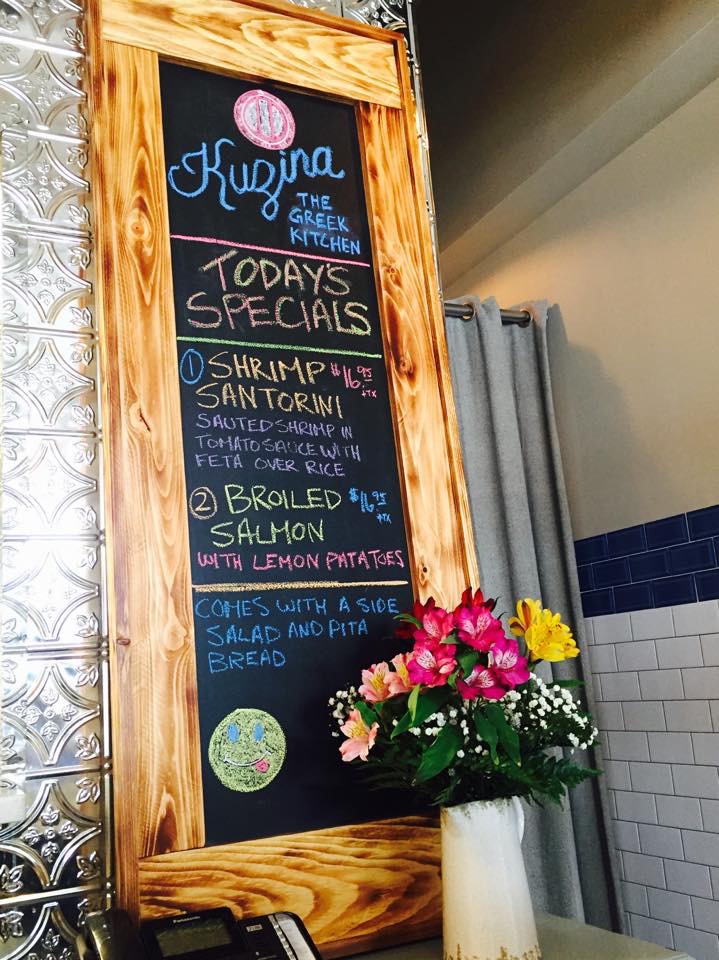 Kuzina
THE
GREEK
KITCHEN
TODAY'S
SPECIALS
1 SHRIMP $16.95
SANTORINI +TX
SAUTED SHRIMP IN
TOMATO SAUCE WITH
FETA OVER RICE
2 BROILED $16.95
SALMON +TX
WITH LEMON PATATOES
COMES WITH A SIDE
SALAD AND PITA
BREAD
Panasonic